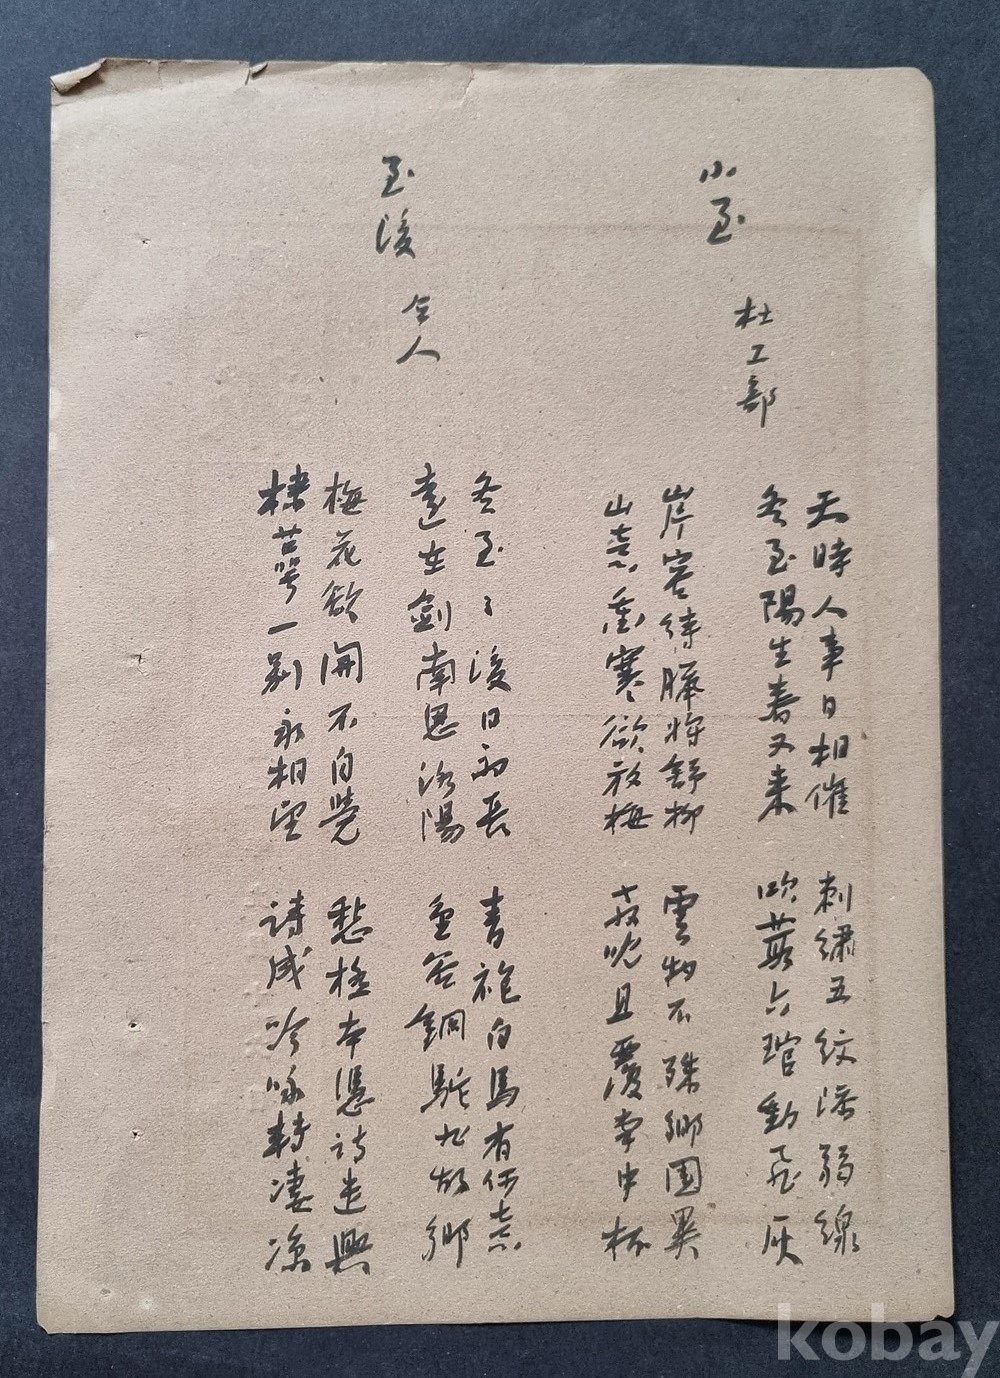 小至
杜工部
天時人事日相催
冬至陽生春又来
刺繡五紋添弱線
吹葭六琯動飛灰
岸容待臘將舒柳
山意衝寒欲放梅
雲物不殊鄉國異
教兒且覆掌中杯
至後
仝人
冬至々後日初長
遠在劍南思洛陽
青袍白馬有何意
金谷銅駝非故鄉
梅花欲開不自覺
棣萼一別永相望
愁極本憑詩遣興
詩成吟咏轉凄凉
kobay